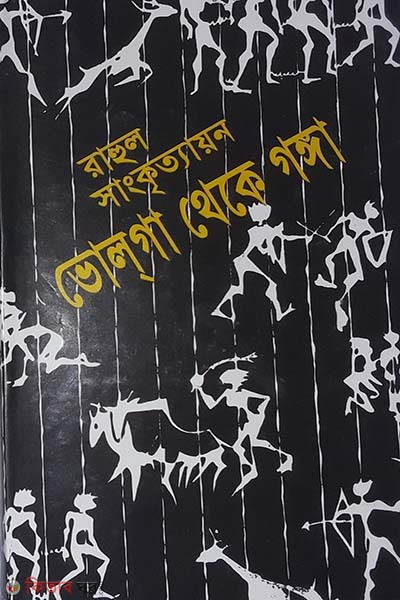 রাহুল
সাংকৃত্যায়ন
ভোল্‌গা থেকে গঙ্গা